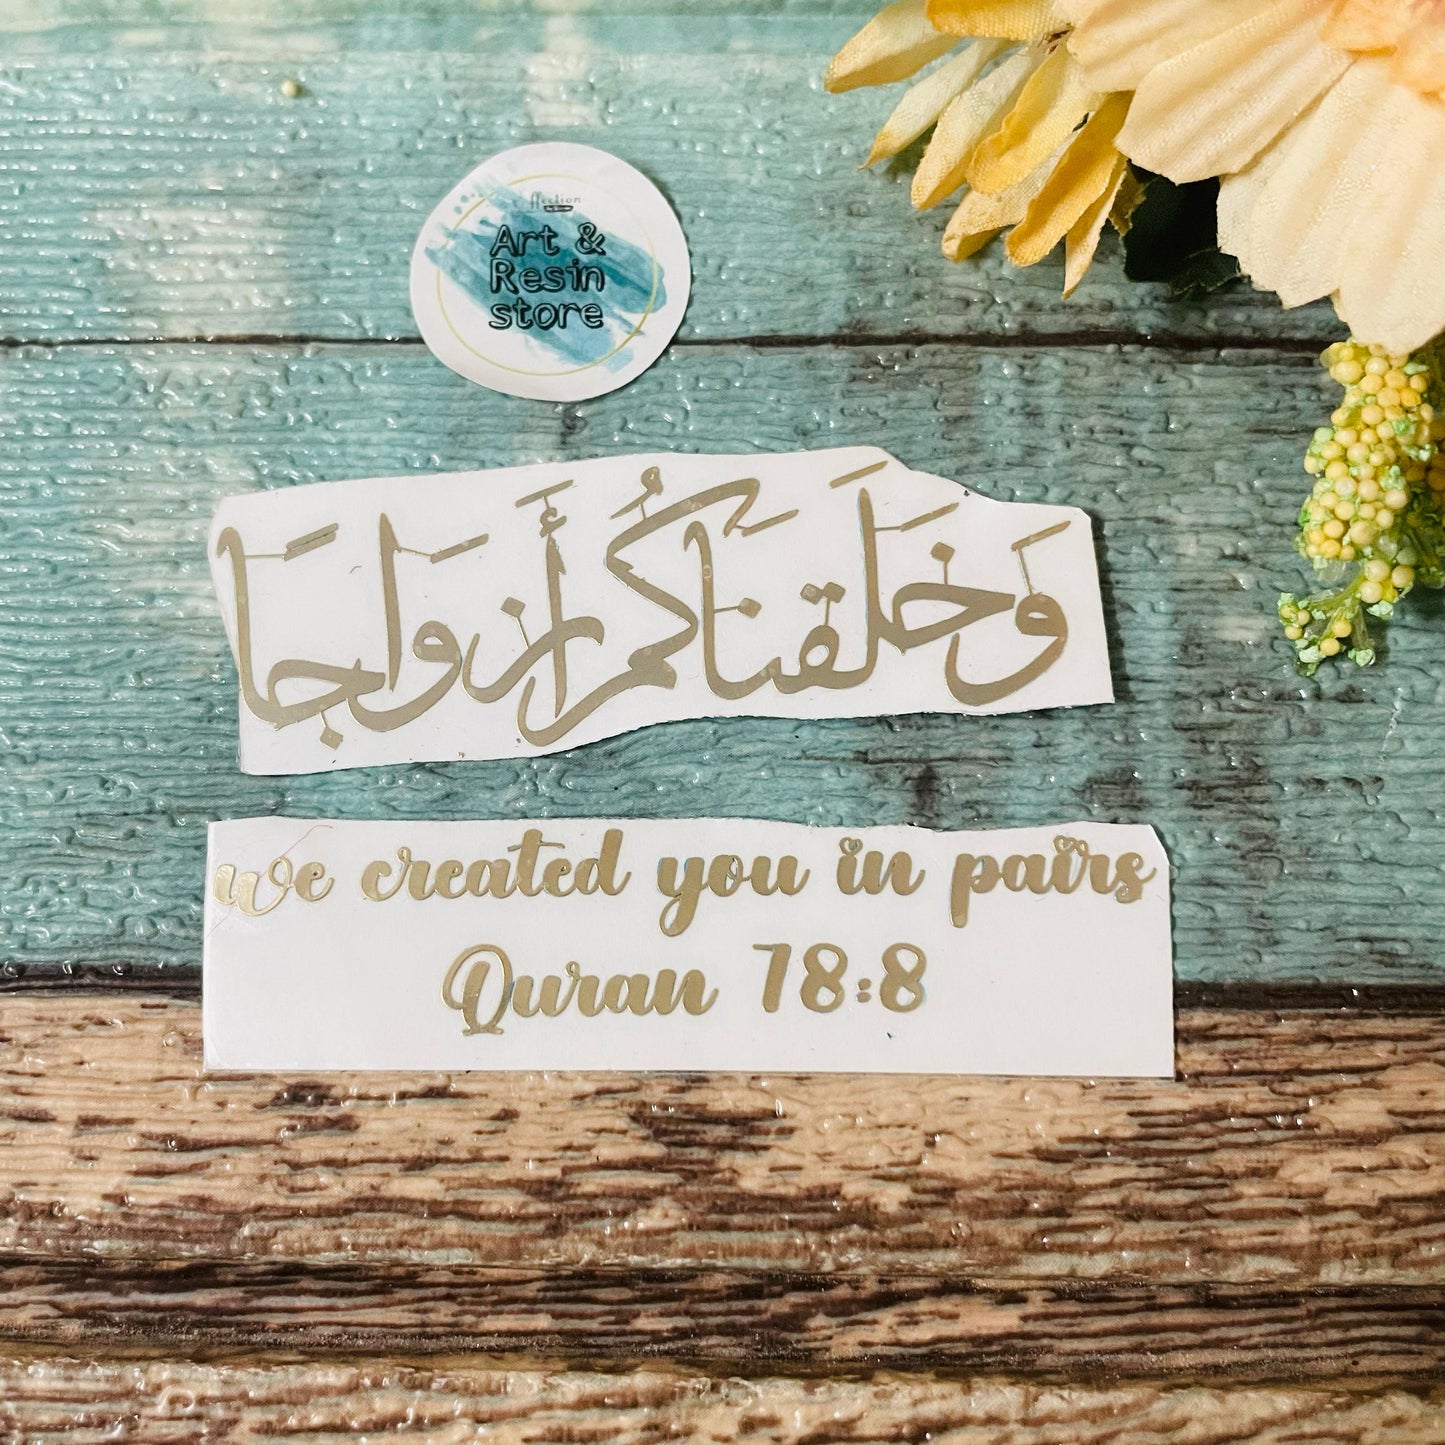 ffection
Art &
Resin
store
وَخَلَقنَاكُمْ أَزوَاجًا
we created you in pairs
Quran 78:8